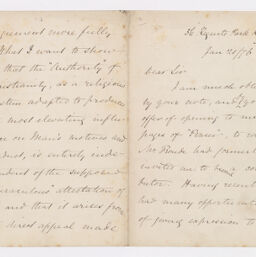 argument more fully
What I want to show
that the "Authority" of
Christianity, as a religious
system adapted to produce
the most elevating influ-
ence on Man's motives and
conduct, is entirely inde-
pendent of the supposed
"miraculous" attestation of
and that it arises from
direct appeal made
56 Regents Park R
Jan 20/76
Dear Sir
I am much obli
by your note, and yo
offer of opening to me
pages of "
Mr Froude had formerly
invited me to being a con
butor. Having recent
had many opportunit
of giving expression to